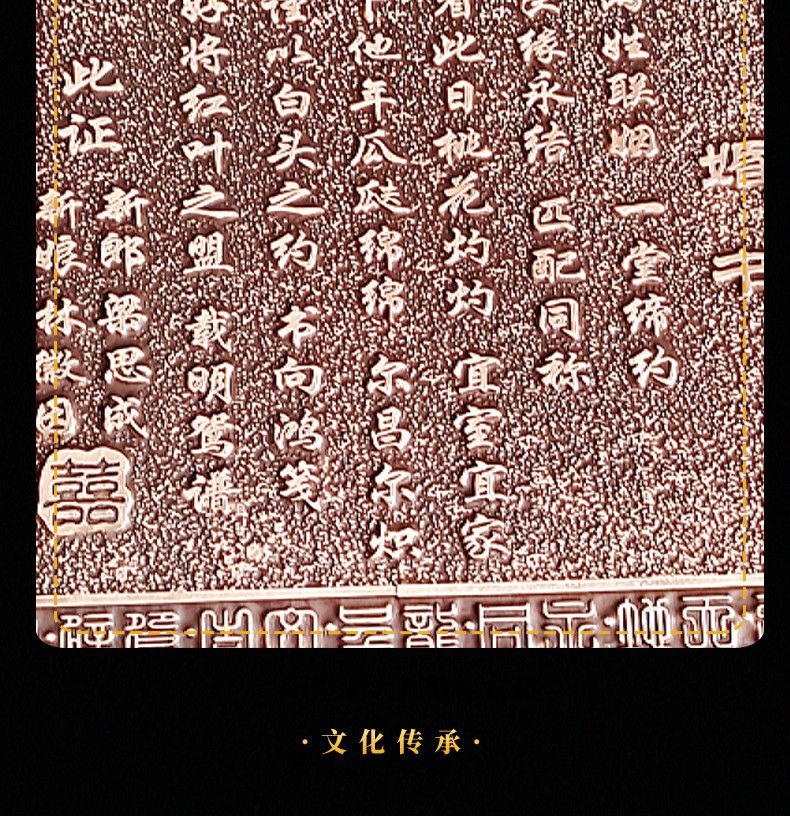 婚书
姓联姻 一堂缔约
缘永结 匹配同称
看此日桃花灼灼 宜室宜家
卜他年瓜瓞绵绵 尔昌尔炽
谨以白头之约 书向鸿笺
好将红叶之盟 载明鸳谱
此证
新郎 梁思成
新娘 林徽因
囍
·文化传承·